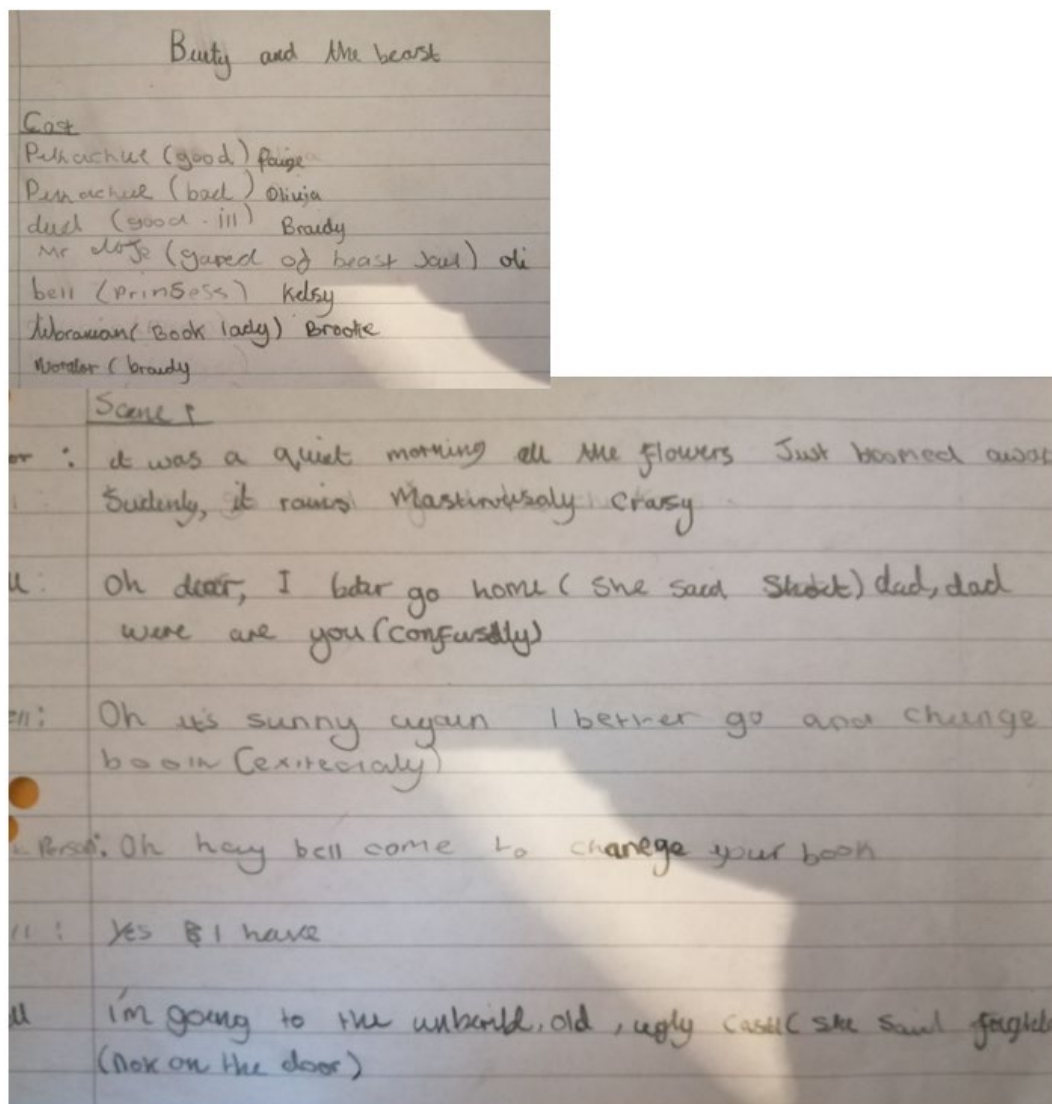 Beuty and the beast
Cast
(good) Paige
(bad) Olivia
dad (good - ill) Braidy
Mr (gared of beast Jail) oli
bell (prinsess) Kelsy
(Book lady) Brooke
Norator (braidy
Scene 1
or : it was a quiet morning all the flowers Just boomed
Sudenly, it rains crasy
ll: Oh dear, I beter go home (she said) dad, dad
were are you (confusdly)
ell: Oh it's sunny again I better go and change
book
Person: Oh hay bell come to chanege your book
ll : Yes I have
ll I'm going to the old, ugly castle (she said
(nok on the door)